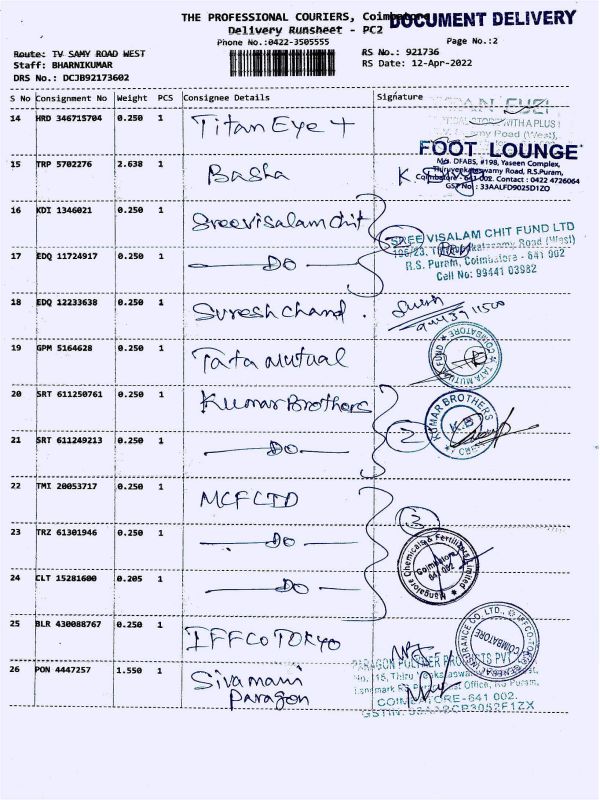 THE PROFESSIONAL COURIERS, Coimbatore
DOCUMENT DELIVERY
Delivery Runsheet - PC2
Phone No.:0422-3505555
Page No.:2
Route: TV SAMY ROAD WEST
RS No.: 921736
Staff: BHARNIKUMAR
RS Date: 12-Apr-2022
DRS No.: DCJB92173602
S No Consignment No Weight PCS Consignee Details Signature
14 HRD 346715704 0.250 1 Titan Eye +
WITH A PLUS
Road (West),
15 TRP 5702276 2.638 1 Basha
FOOT LOUNGE
M/s. DFABS, #198, Yaseen Complex,
Thiruvenkataswamy Road, R.S.Puram,
Coimbatore - 641 002. Contact : 0422 4726064
GST No : 33AALFD9025D1ZO
16 KDI 1346021 0.250 1 Sreevisalam Chit
SREE VISALAM CHIT FUND LTD
Road (West)
R.S. Puram, Coimbatore - 641 002
Cell No: 99441 03982
17 EDQ 11724917 0.250 1 Do
18 EDQ 12233638 0.250 1 Suresh Chand.
19 GPM 5164628 0.250 1 Tata Mutual
TATA MUTUAL FUND COIMBATORE
20 SRT 611250761 0.250 1 Kumar Brothers
KUMAR BROTHERS
K.B
2
21 SRT 611249213 0.250 1 Do
22 TMI 20053717 0.250 1 MCF LTD
3
23 TRZ 61301946 0.250 1 Do
Mangalore Chemicals & Fertilizers Limited
Coimbatore
641 002
24 CLT 15281600 0.205 1 Do
25 BLR 430088767 0.250 1 IFFCO TOKYO
IFFCO-TOKIO GENERAL INSURANCE CO. LTD.,
COIMBATORE
26 PON 4447257 1.550 1 Sivamani
Paragon
PARAGON POLYMER PRODUCTS PVT
COIMBATORE-641 002.